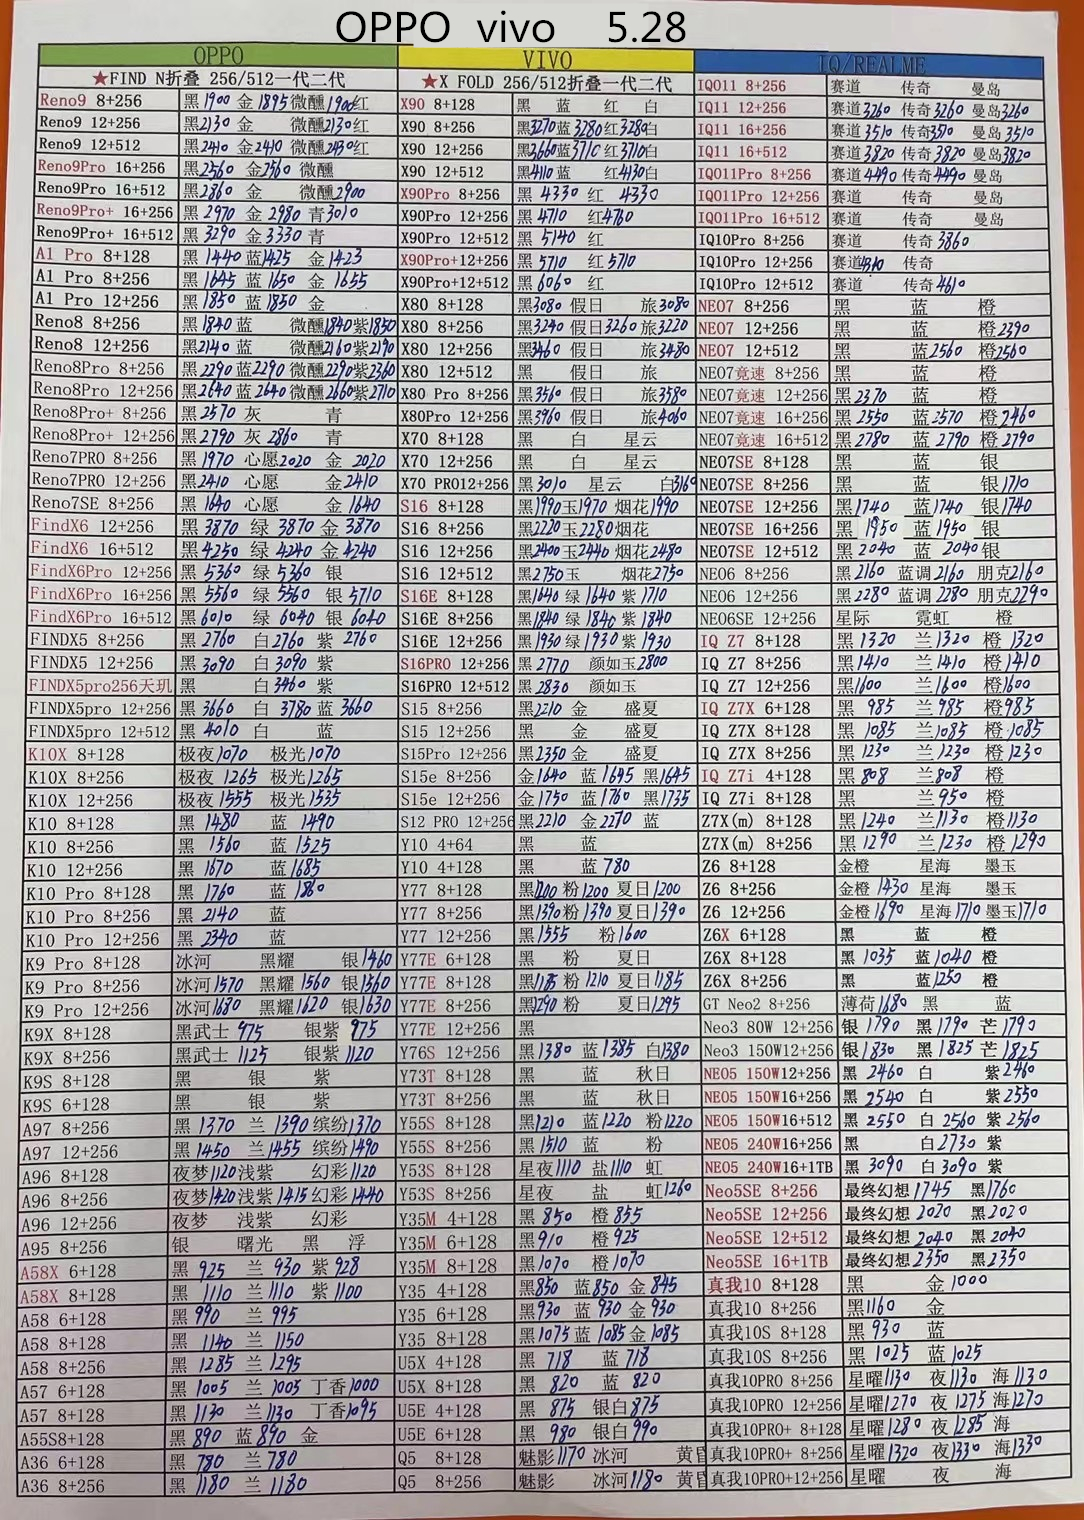 OPPO vivo 5.28
OPPO
★FIND N折叠 256/512一代二代
Reno9 8+256 黑1900 金1895 微醺1900红
Reno9 12+256 黑2130 金 微醺2130红
Reno9 12+512 黑2410 金2410 微醺2430红
Reno9Pro 16+256 黑2560 金2560 微醺
Reno9Pro 16+512 黑2860 金 微醺2900
Reno9Pro+ 16+256 黑2970 金2980 青3010
Reno9Pro+ 16+512 黑3290 金3330 青
A1 Pro 8+128 黑1440 蓝1425 金1423
A1 Pro 8+256 黑1645 蓝1650 金1655
A1 Pro 12+256 黑1850 蓝1850 金
Reno8 8+256 黑1840 蓝 微醺1840 紫1850
Reno8 12+256 黑2140 蓝 微醺2160 紫2190
Reno8Pro 8+256 黑2290 蓝2290 微醺2290 紫2360
Reno8Pro 12+256 黑2640 蓝2640 微醺2660 紫2710
Reno8Pro+ 8+256 黑2570 灰 青
Reno8Pro+ 12+256 黑2790 灰2860 青
Reno7PRO 8+256 黑1970 心愿2020 金2020
Reno7PRO 12+256 黑2410 心愿 金2410
Reno7SE 8+256 黑1640 心愿 金1640
FindX6 12+256 黑3870 绿3870 金3870
FindX6 16+512 黑4250 绿4240 金4240
FindX6Pro 12+256 黑5360 绿5360 银
FindX6Pro 16+256 黑5560 绿5560 银5710
FindX6Pro 16+512 黑6010 绿6040 银6040
FINDX5 8+256 黑2760 白2760 紫2760
FINDX5 12+256 黑3090 白3090 紫
FINDX5pro256天玑 黑 白3460 紫
FINDX5pro 12+256 黑3660 白3780 蓝3660
FINDX5pro 12+512 黑4010 白 蓝
K10X 8+128 极夜1070 极光1070
K10X 8+256 极夜1265 极光1265
K10X 12+256 极夜1555 极光1535
K10 8+128 黑1480 蓝1490
K10 8+256 黑1560 蓝1525
K10 12+256 黑1670 蓝1685
K10 Pro 8+128 黑1760 蓝1860
K10 Pro 8+256 黑2140 蓝
K10 Pro 12+256 黑2340 蓝
K9 Pro 8+128 冰河 黑耀 银1460
K9 Pro 8+256 冰河1570 黑耀1560 银1560
K9 Pro 12+256 冰河1630 黑耀1620 银1630
K9X 8+128 黑武士975 银紫975
K9X 8+256 黑武士1125 银紫1120
K9S 8+128 黑 银 紫
K9S 6+128 黑 银 紫
A97 8+256 黑1370 兰1390 缤纷1370
A97 12+256 黑1450 兰1455 缤纷1490
A96 8+128 夜梦1120 浅紫 幻彩1120
A96 8+256 夜梦1420 浅紫1415 幻彩1440
A96 12+256 夜梦 浅紫 幻彩
A95 8+256 银 曙光 黑 浮
A58X 6+128 黑925 兰930 紫928
A58X 8+128 黑1110 兰1110 紫1100
A58 6+128 黑990 兰995
A58 8+128 黑1140 兰1150
A58 8+256 黑1285 兰1295
A57 6+128 黑1005 兰1005 丁香1000
A57 8+128 黑1130 兰1130 丁香1095
A55S8+128 黑890 蓝890 金
A36 6+128 黑780 兰780
A36 8+256 黑1180 兰1180
VIVO
★X FOLD 256/512折叠一代二代
X90 8+128 黑 蓝 红 白
X90 8+256 黑3270 蓝3280 红3280白
X90 12+256 黑3660 蓝3710 红3710白
X90 12+512 黑4110 蓝 红4130白
X90Pro 8+256 黑4330 红4330
X90Pro 12+256 黑4710 红4760
X90Pro 12+512 黑5140 红
X90Pro+12+256 黑5710 红5710
X90Pro+12+512 黑6060 红
X80 8+128 黑3080 假日 旅3080
X80 8+256 黑3240 假日3260 旅3220
X80 12+256 黑3460 假日 旅3480
X80 12+512 黑 假日 旅
X80 Pro 8+256 黑3560 假日 旅3580
X80Pro 12+256 黑3960 假日 旅4060
X70 8+128 黑 白 星云
X70 12+256 黑 白 星云
X70 PRO12+256 黑3010 星云 白3160
S16 8+128 黑1990 玉1970 烟花1990
S16 8+256 黑2220 玉2280 烟花
S16 12+256 黑2400 玉2440 烟花2480
S16 12+512 黑2750 玉 烟花2750
S16E 8+128 黑1640 绿1640 紫1710
S16E 8+256 黑1840 绿1840 紫1840
S16E 12+256 黑1930 绿1930 紫1930
S16PRO 12+256 黑2770 颜如玉2800
S16PRO 12+512 黑2830 颜如玉
S15 8+256 黑2210 金 盛夏
S15 12+256 黑 金 盛夏
S15Pro 12+256 黑2350 金 盛夏
S15e 8+256 金1640 蓝1645 黑1645
S15e 12+256 金1750 蓝1760 黑1735
S12 PRO 12+256 黑2210 金2270 蓝
Y10 4+64 黑 蓝
Y10 4+128 黑 蓝780
Y77 8+128 黑1200 粉1200 夏日1200
Y77 8+256 黑1390 粉1390 夏日1390
Y77 12+256 黑1555 粉1600
Y77E 6+128 黑 粉 夏日
Y77E 8+128 黑1185 粉1210 夏日1185
Y77E 8+256 黑1290 粉 夏日1295
Y77E 12+256 黑
Y76S 12+256 黑1380 蓝1385 白1380
Y73T 8+128 黑 蓝 秋日
Y73T 8+256 黑 蓝 秋日
Y55S 8+128 黑1210 蓝1220 粉1220
Y55S 8+256 黑1510 蓝 粉
Y53S 8+128 星夜1110 盐1110 虹
Y53S 8+256 星夜 盐 虹1260
Y35M 4+128 黑850 橙855
Y35M 6+128 黑910 橙925
Y35M 8+128 黑1070 橙1070
Y35 4+128 黑850 蓝850 金845
Y35 6+128 黑930 蓝930 金930
Y35 8+128 黑1075 蓝1085 金1085
U5X 4+128 黑718 蓝718
U5X 8+128 黑820 蓝820
U5E 4+128 黑875 银白875
U5E 6+128 黑980 银白990
Q5 8+128 魅影1170 冰河 黄昏
Q5 8+256 魅影 冰河1180 黄昏
IQ/REALME
IQO11 8+256 赛道 传奇 曼岛
IQ11 12+256 赛道3260 传奇3260 曼岛3260
IQ11 16+256 赛道3510 传奇3510 曼岛3510
IQ11 16+512 赛道3820 传奇3820 曼岛3820
IQO11Pro 8+256 赛道4490 传奇4490 曼岛
IQO11Pro 12+256 赛道 传奇 曼岛
IQO11Pro 16+512 赛道 传奇 曼岛
IQ10Pro 8+256 赛道 传奇3860
IQ10Pro 12+256 赛道4310 传奇
IQ10Pro 12+512 赛道 传奇4610
NEO7 8+256 黑 蓝 橙
NEO7 12+256 黑 蓝 橙2390
NEO7 12+512 黑 蓝2560 橙2560
NEO7竟速 8+256 黑 蓝 橙
NEO7竟速 12+256 黑2370 蓝 橙
NEO7竟速 16+256 黑2550 蓝2570 橙2460
NEO7竟速 16+512 黑2780 蓝2790 橙2790
NEO7SE 8+128 黑 蓝 银
NEO7SE 8+256 黑 蓝 银1710
NEO7SE 12+256 黑1740 蓝1740 银1740
NEO7SE 16+256 黑1950 蓝1950 银
NEO7SE 12+512 黑2040 蓝2040 银
NEO6 8+256 黑2160 蓝调2160 朋克2160
NEO6 12+256 黑2280 蓝调2280 朋克2290
NEO6SE 12+256 星际 霓虹 橙
IQ Z7 8+128 黑1320 兰1320 橙1320
IQ Z7 8+256 黑1410 兰1410 橙1410
IQ Z7 12+256 黑1600 兰1600 橙1600
IQ Z7X 6+128 黑985 兰985 橙985
IQ Z7X 8+128 黑1085 兰1085 橙1085
IQ Z7X 8+256 黑1230 兰1230 橙1230
IQ Z7i 4+128 黑808 兰808 橙
IQ Z7i 8+128 黑 兰950 橙
Z7X(m) 8+128 黑1240 兰1130 橙1130
Z7X(m) 8+256 黑1290 兰1230 橙1290
Z6 8+128 金橙 星海 墨玉
Z6 8+256 金橙1430 星海 墨玉
Z6 12+256 金橙1690 星海1710 墨玉1710
Z6X 6+128 黑 蓝 橙
Z6X 8+128 黑1035 蓝1040 橙
Z6X 8+256 黑 蓝1250 橙
GT Neo2 8+256 薄荷1680 黑 蓝
Neo3 80W 12+256 银1790 黑1790 芒1790
Neo3 150W12+256 银1830 黑1825 芒1825
NEO5 150W12+256 黑2460 白 紫2460
NEO5 150W16+256 黑2540 白 紫2550
NEO5 150W16+512 黑2550 白2560 紫2560
NEO5 240W16+256 黑 白2730 紫
NEO5 240W16+1TB 黑3090 白3090 紫
Neo5SE 8+256 最终幻想1745 黑1760
Neo5SE 12+256 最终幻想2020 黑2020
Neo5SE 12+512 最终幻想2040 黑2040
Neo5SE 16+1TB 最终幻想2350 黑2350
真我10 8+128 黑 金1000
真我10 8+256 黑1160 金
真我10S 8+128 黑930 蓝
真我10S 8+256 黑1025 蓝1025
真我10PRO 8+256 星曜1130 夜1130 海1130
真我10PRO 12+256 星曜1270 夜1275 海1270
真我10PRO+ 8+128 星曜1280 夜1285 海
真我10PRO+ 8+256 星曜1320 夜1330 海1330
真我10PRO+12+256 星曜 夜 海